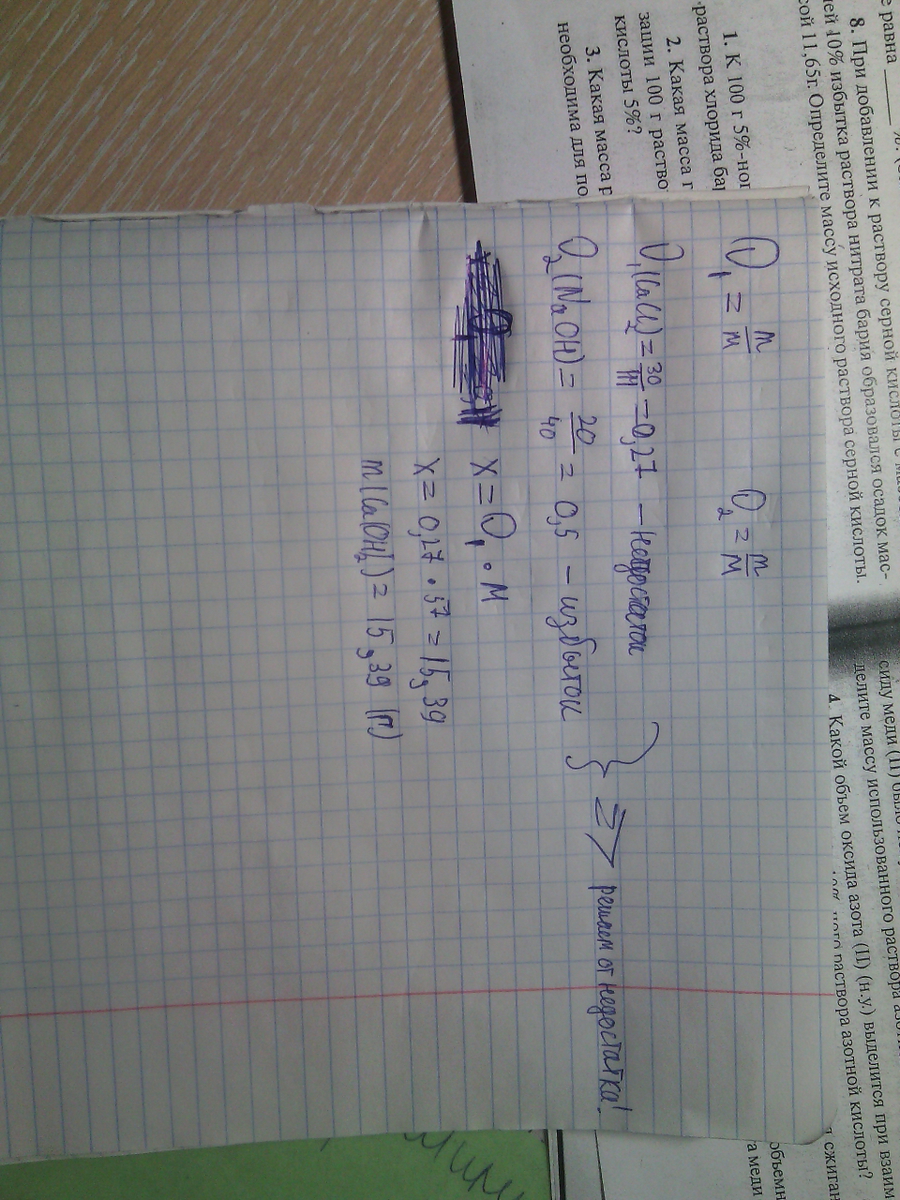 е равна
8. При добавлении к раствору серной кислоты с
ей 10% избытка раствора нитрата бария образовался осадок мас-
сой 11,65г. Определите массу исходного раствора серной кислоты.
1. К 100 г 5%-ног
раствора хлорида ба
2. Какая масса
зации 100 г раство
кислоты 5%?
3. Какая масса р
необходима для по
сиду меди (II) было
делите массу использованного раствора
4. Какой объем оксида азота (II) (н.у.) выделится при взаим
раствора азотной кислоты?
сжиган
объемн
а меди
υ₁ = m/M υ₂ = m/M
υ₁(CaCl₂) = 30/111 = 0,27 – недостаток
υ₂(NaOH) = 20/40 = 0,5 – избыток
=> решаем от недостатка!
x = υ₁ · M
x = 0,27 · 57 = 15,39
m(Ca(OH)₂) = 15,39 (г)